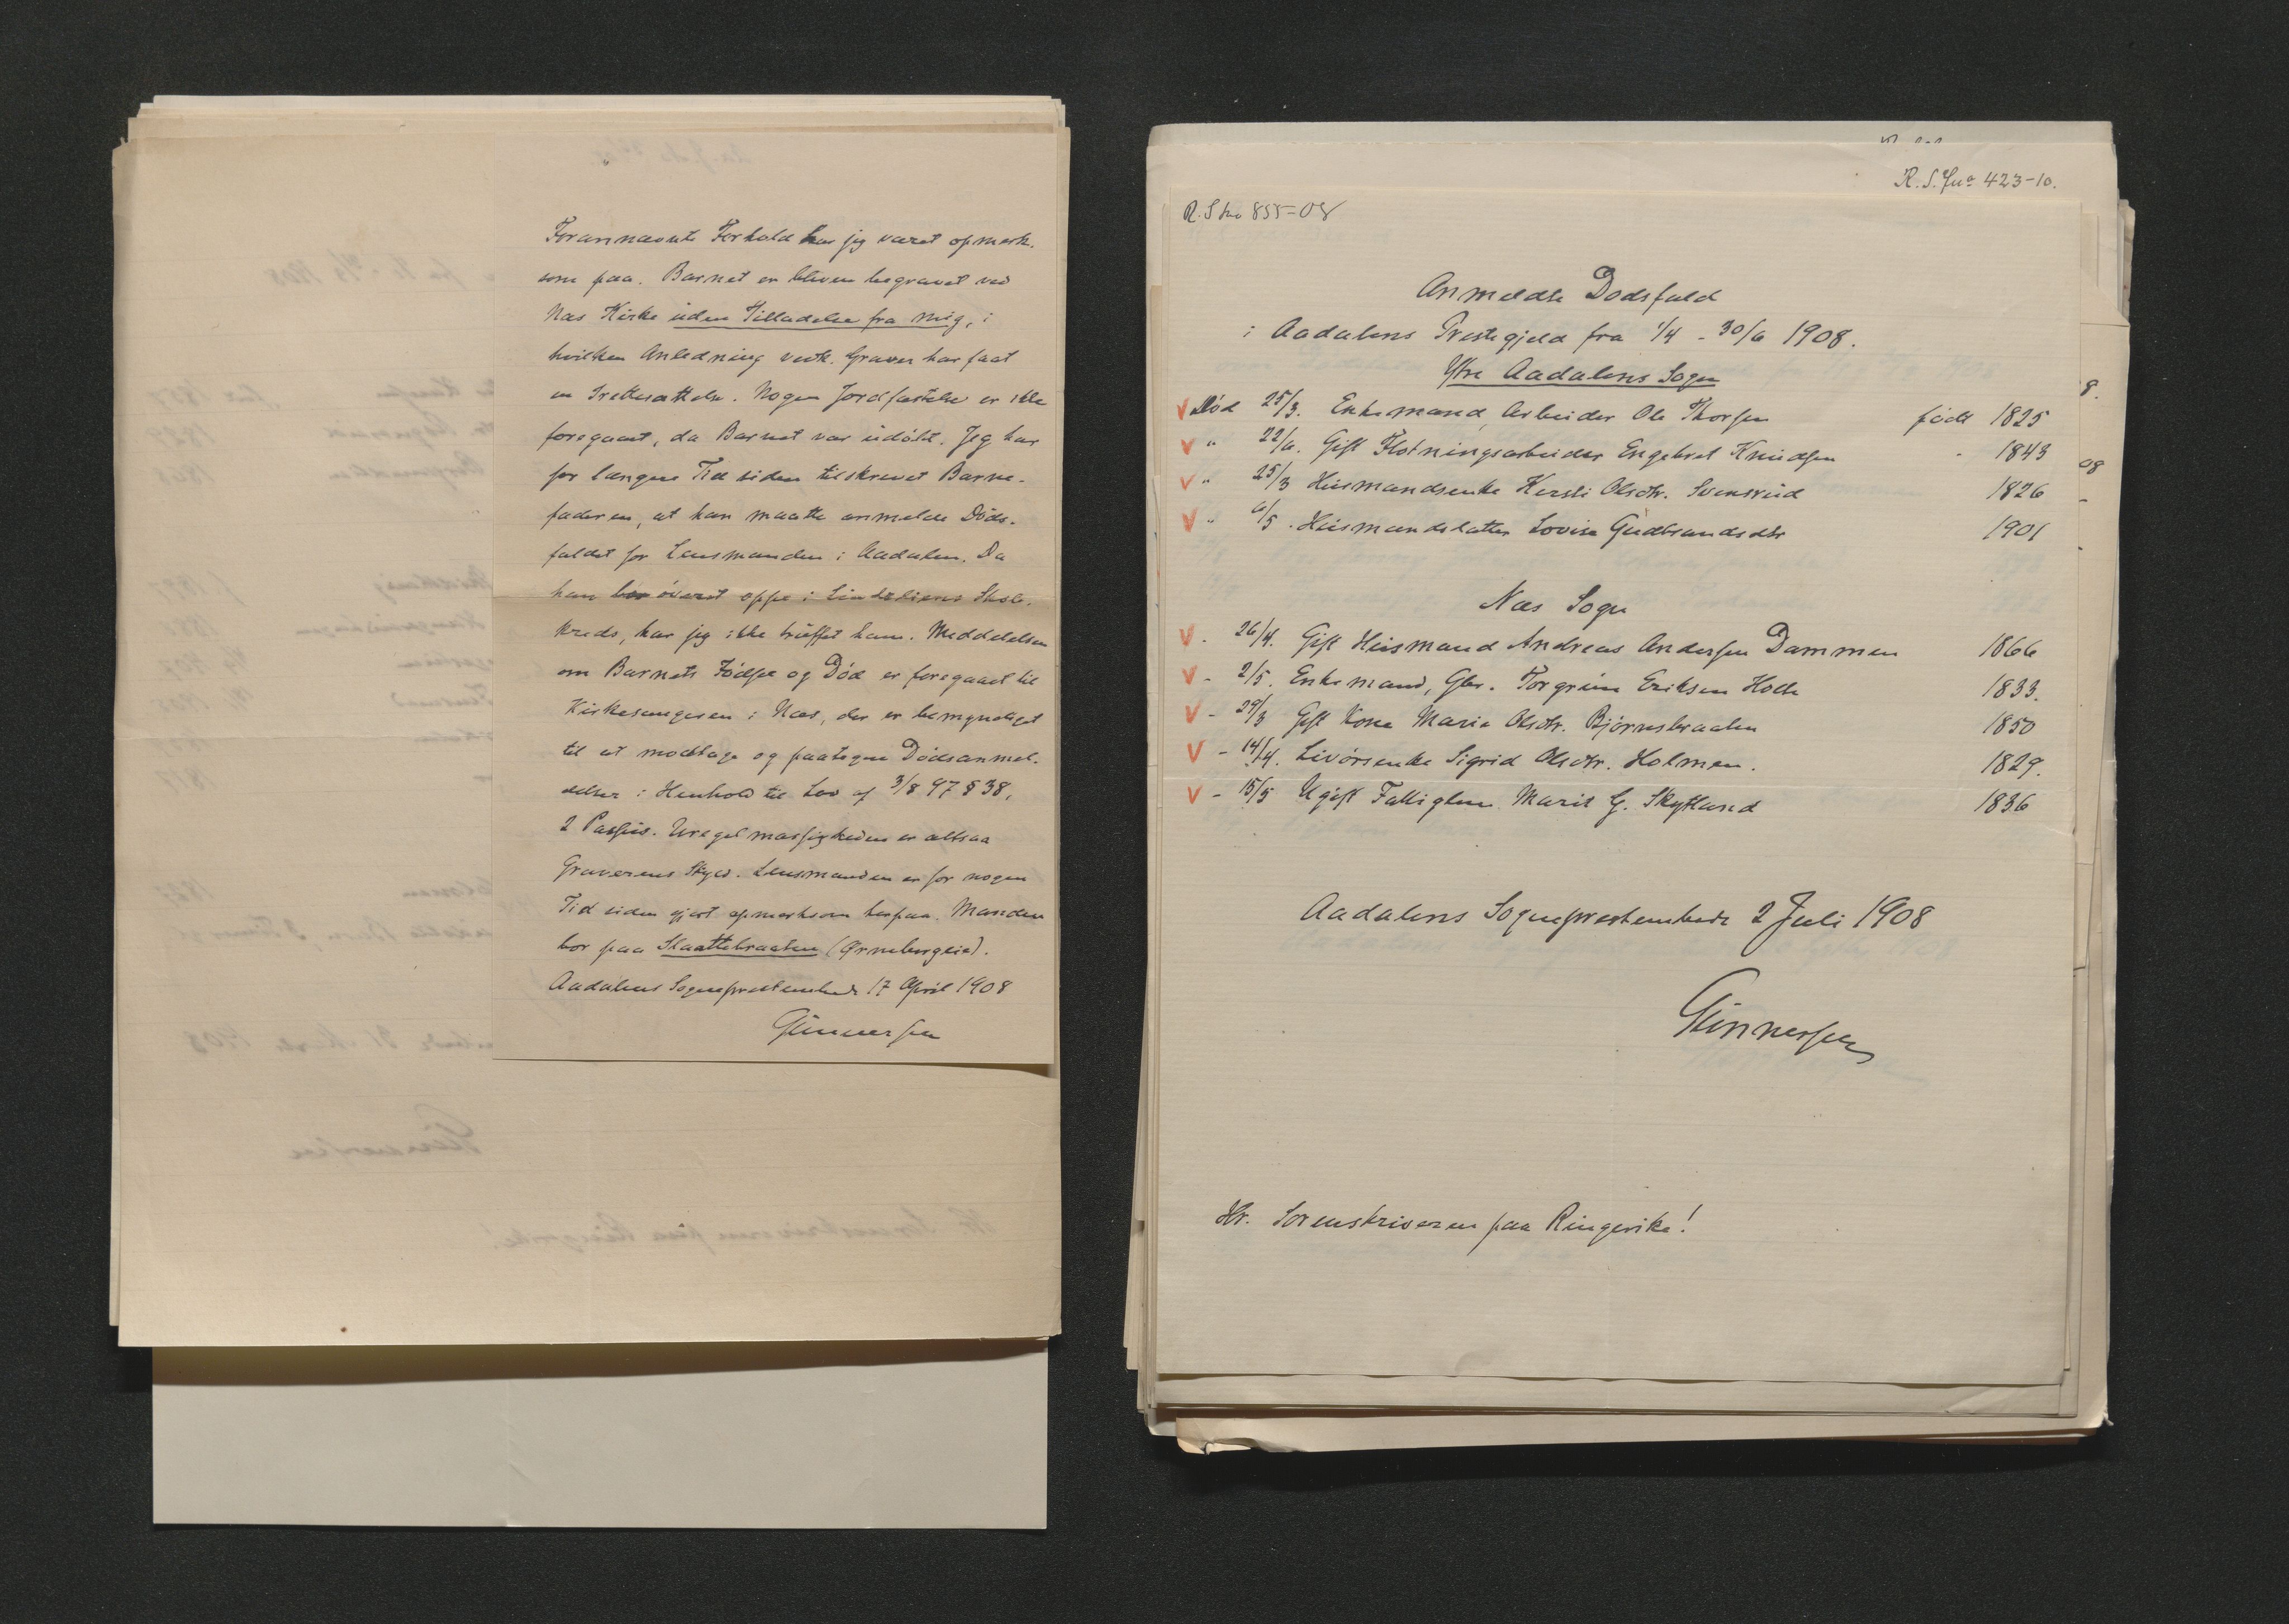 Forannævnte Forhold har jeg været opmærk-
som paa. Barnet er bleven begravet ved
Næs Kirke uden Tilladelse fra mig, i
hvilken Anledning vedk. Graver har faat
en Irettesættelse. Nogen Jordfæstelse er ikke
foregaaet, da Barnet var udøbt. Jeg har
for længere Tid siden tilskrevet Barne-
faderen, at han maatte anmelde Døds-
faldet for Lensmanden i Aadalen. Da
han bor øverst oppe i Lindeliens Skole-
kreds, har jeg ikke truffet ham. Meddelelsen
om Barnets Fødsel og Død er foregaaet til
Kirkesangeren i Næs, der er bemyndiget
til at modtage og paategne Dødsanmel-
delser i Henhold til Lov af 3/8 97 § 38,
2 Passus. Uregelmæssigheden er altsaa
Graverens Skyld. Lensmanden er for nogen
Tid siden gjort opmerksom herpaa. Manden
bor paa Slaattebraaten (Ørnebergeie).
Aadalens Sogneprestembede 17 April 1908
Gunnersen
R. S. Jno 423-10.
R. S no 855-08
Anmeldte Dødsfald
i Aadalens Prestegjeld fra 1/4 - 30/6 1908.
Ytre Aadalens Sogn
V Død 25/3. Enkemand, Arbeider Ole Thorsen født 1825
V " 22/6. Gift Fløtningsarbeider Engebret Knudsen - 1843
V " 25/3 Husmandsenke Kersti Olsdtr. Svensrud 1826
V " 6/5. Husmandsdatter Lovise Gudbrandsdtr 1901
Næs Sogn
V - 26/4. Gift Husmand Andreas Andersen Dammen 1866
V - 2/5. Enkemand, Gbr. Torgrim Eriksen Holte 1833.
V - 29/3 Gift Kone Maria Olsdtr. Bjørnebraaten 1850
V - 14/4. Livørsenke Sigrid Olsdtr. Holmen. 1829.
V - 15/5 Ugift Fattiglem Marit G. Skytland 1836
Aadalens Sogneprestembede 2 Juli 1908
Gunnersen
Hr. Sorenskriveren paa Ringerike!